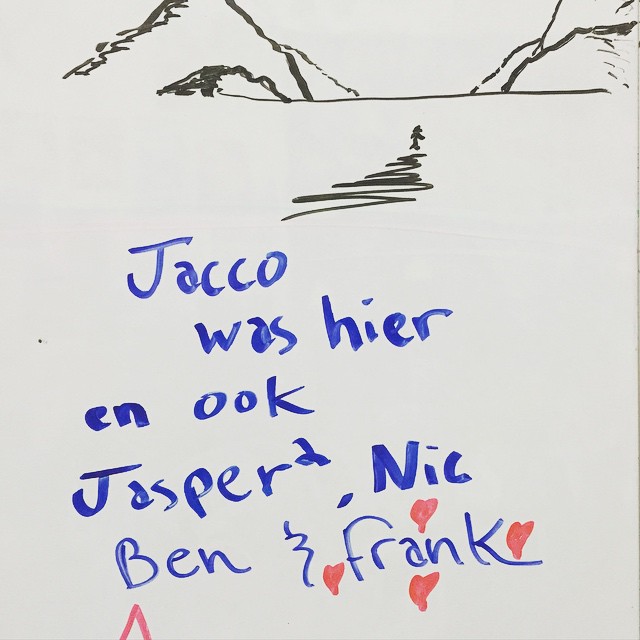 Jacco
was hier
en ook
Jasper², Nic
Ben & frank